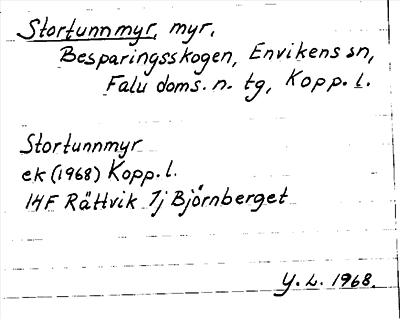 Stortunnmyr, myr,
Besparingsskogen, Envikens sn,
Falu doms. n. tg, Kopp. l.
Stortunnmyr
ek (1968) Kopp. l.
14F Rättvik 7j Björnberget
Y. L. 1968.